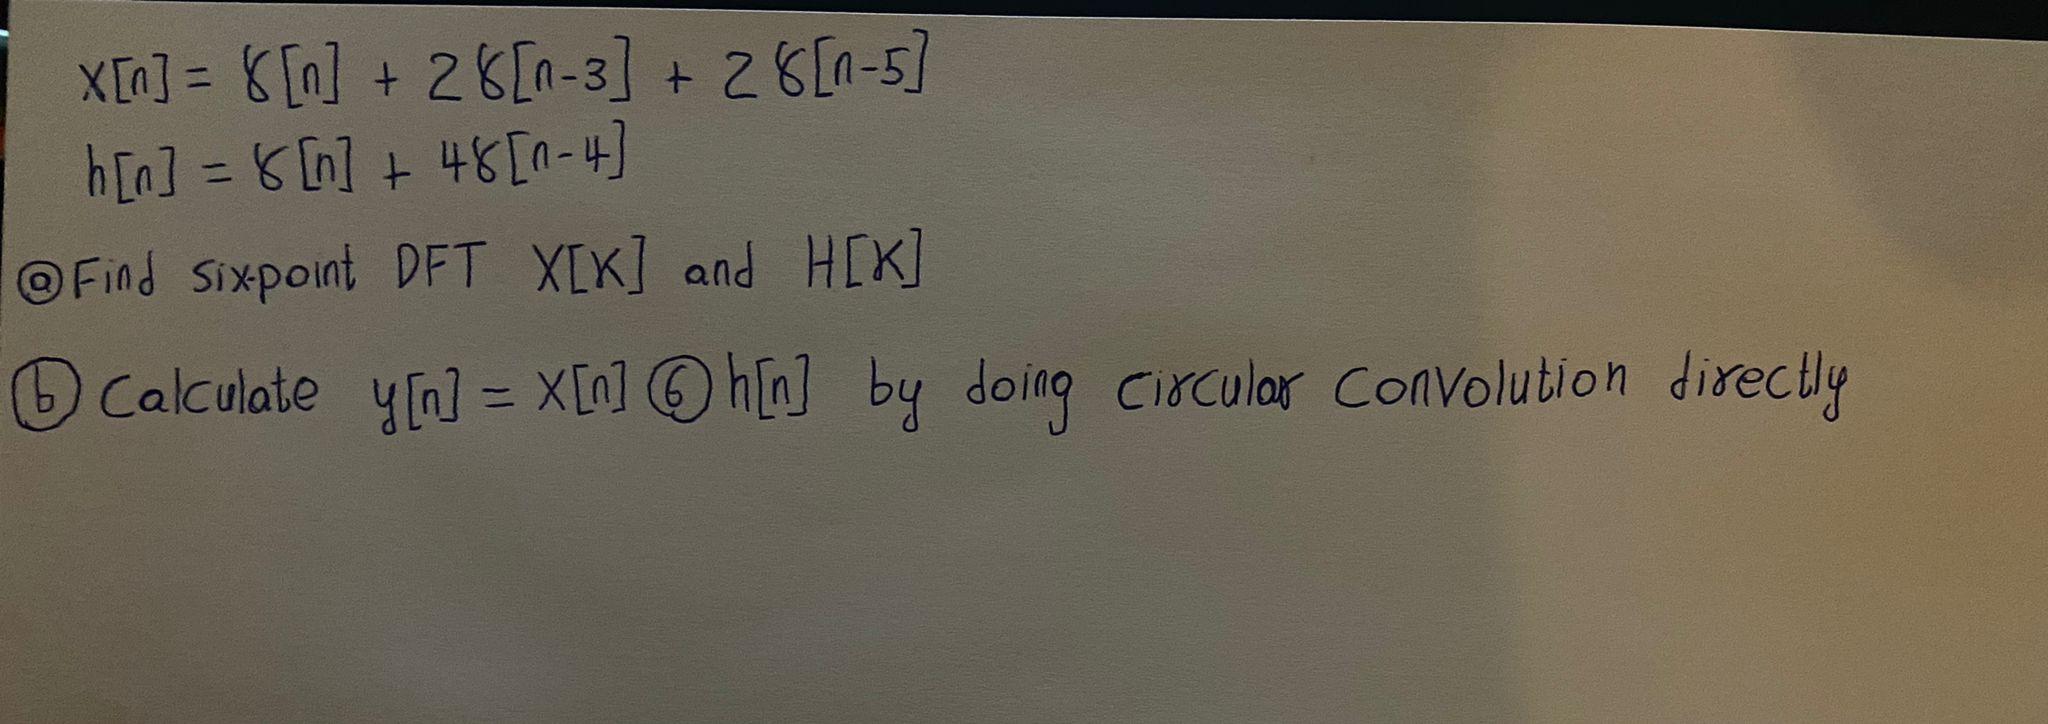 x[n] = δ[n] + 2δ[n-3] + 2δ[n-5]
h[n] = δ[n] + 4δ[n-4]
ⓐ Find six-point DFT X[K] and H[K]
ⓑ Calculate y[n] = x[n] ⑥ h[n] by doing circular convolution directly